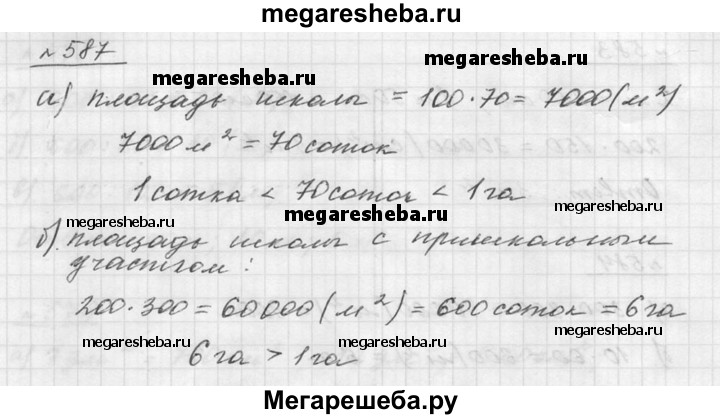 megaresheba.ru
№ 587
megaresheba.ru
а) площадь школы = 100·70 = 7000 (м²)
7000 м² = 70 соток
1 сотка < 70 соток < 1 га
megaresheba.ru megaresheba.ru
б) площадь школы с пришкольным
участком:
200·300 = 60000 (м²) = 600 соток = 6 га
megaresheba.ru megaresheba.ru
6 га > 1 га
Мегарешеба.ру